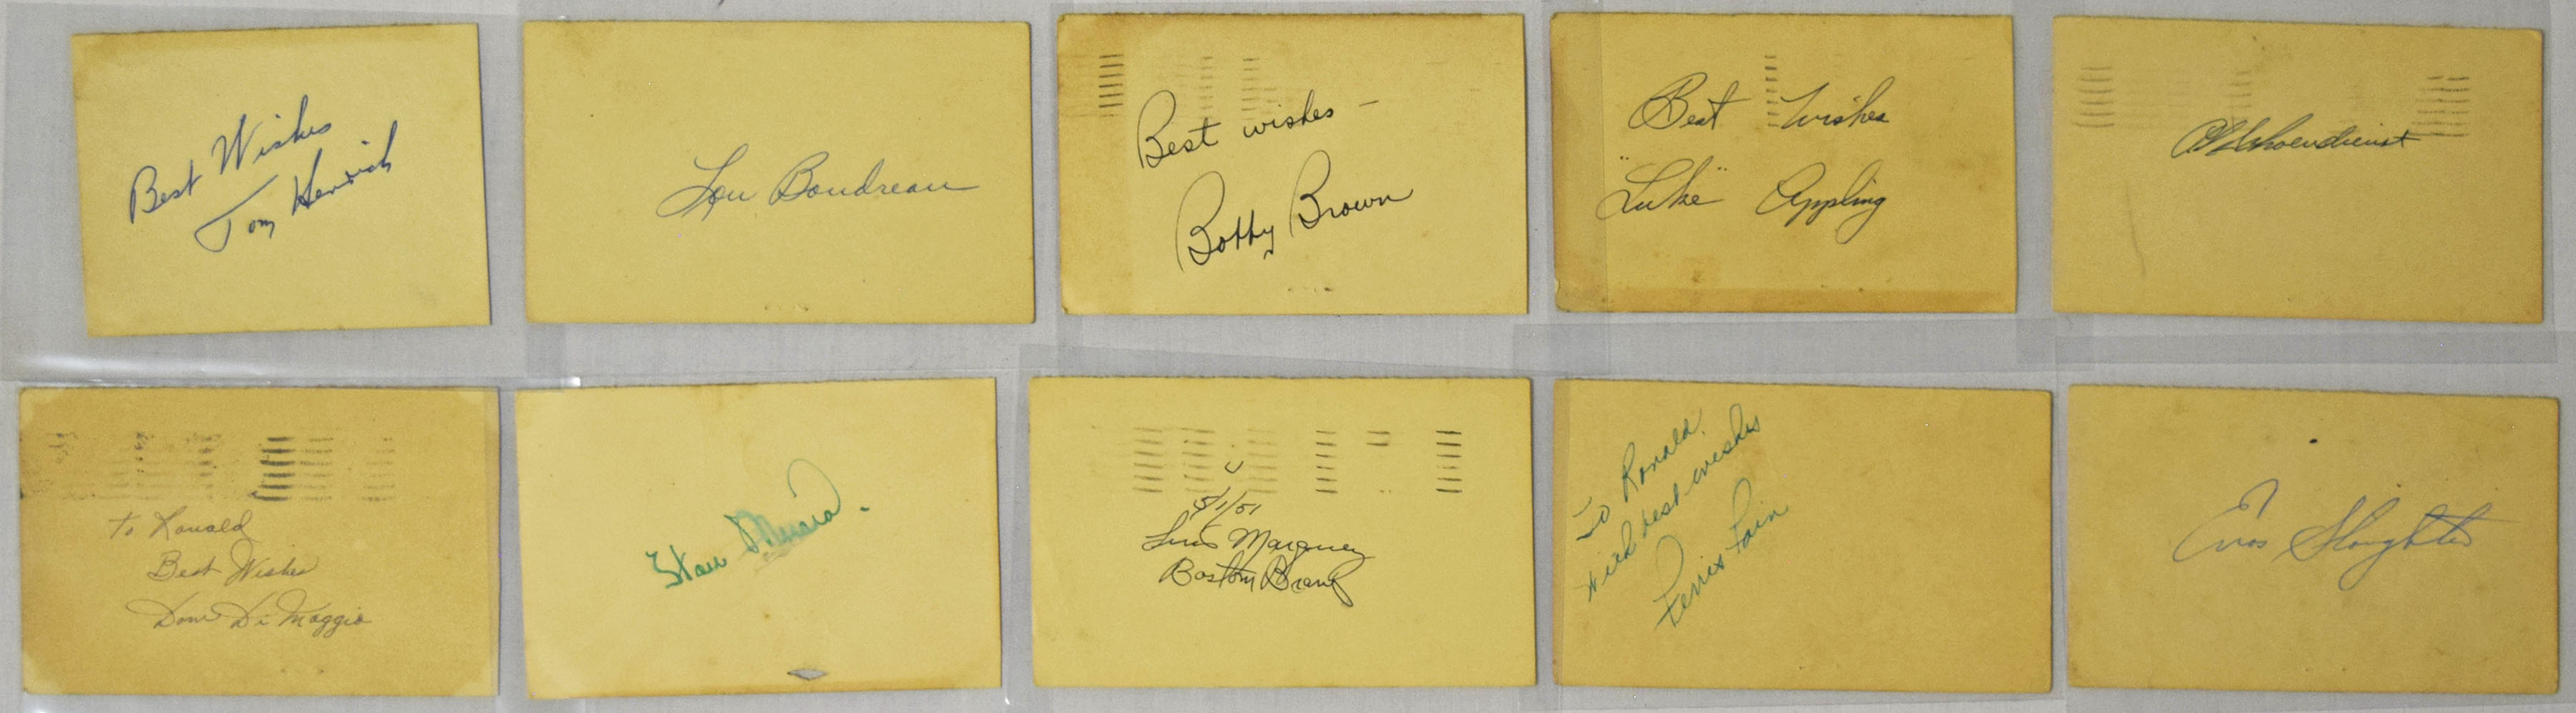 Best Wishes
Tom Henrich
Lou Boudreau
Best wishes –
Bobby Brown
Best Wishes
"Luke" Appling
Schoendienst
To Ronald
Best Wishes
Dom Di Maggio
Stan Musial.
5/1/51
Luis Marquez
Boston Braves
To Ronald.
With best wishes
Ferris Fain
Enos Slaughter